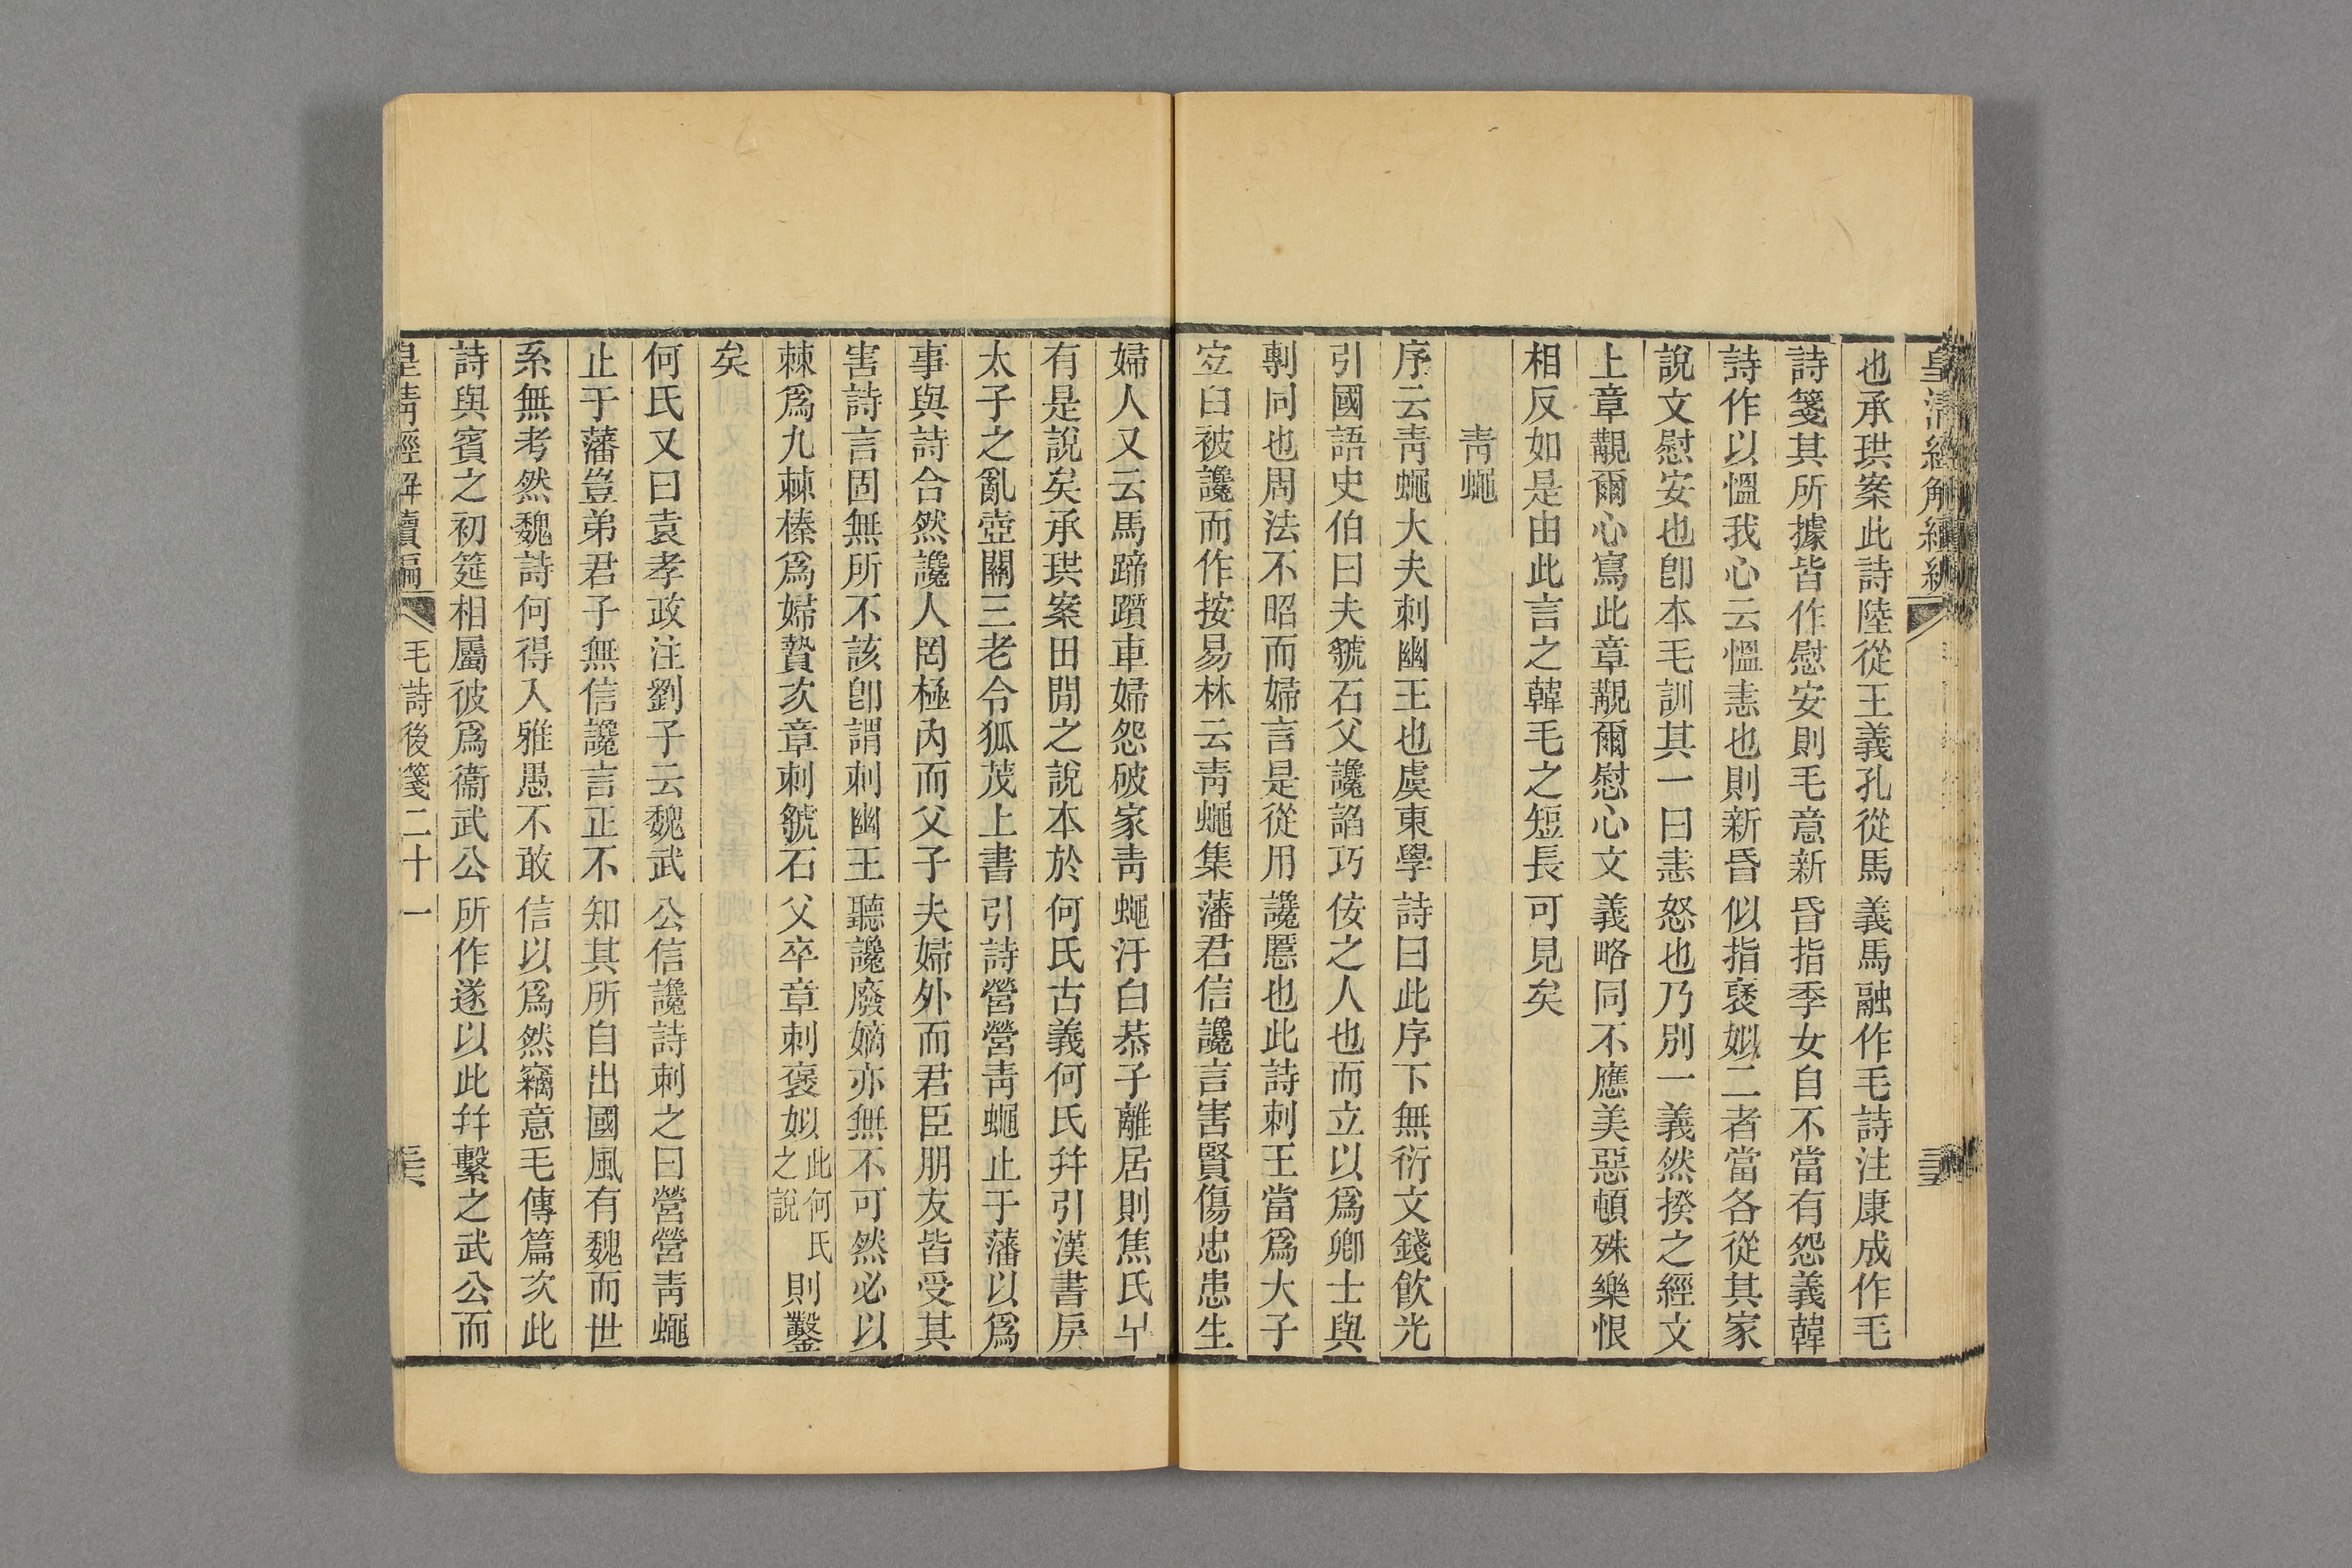 皇清經解續編
也承珙案此詩陸從王義孔從馬義馬融作毛詩注康成作毛
詩箋其所據皆作慰安則毛意新昏指季女自不當有怨義韓
詩作以慍我心云慍恚也則新昏似指襃姒二者當各從其家
說文慰安也卽本毛訓其一曰恚怒也乃別一義然揆之經文
上章覯爾心寫此章覯爾慰心文義略同不應美惡頓殊樂恨
相反如是由此言之韓毛之短長可見矣
靑蠅
序云靑蠅大夫刺幽王也虞東學詩曰此序下無衍文錢飮光
引國語史伯曰夫虢石父讒諂巧佞之人也而立以爲卿士與
剸同也周法不昭而婦言是從用讒慝也此詩刺王當爲大子
宐臼被讒而作按易林云靑蠅集藩君信讒言害賢傷忠患生
婦人又云馬蹄躓車婦怨破家靑蠅汙白恭子離居則焦氏早
有是說矣承珙案田閒之說本於何氏古義何氏幷引漢書戾
太子之亂壺關三老令狐茂上書引詩營營靑蠅止于藩以爲
事與詩合然讒人罔極內而父子夫婦外而君臣朋友皆受其
害詩言固無所不該卽謂刺幽王聽讒廢嫡亦無不可然必以
棘爲九棘榛爲婦贄次章刺虢石父卒章刺褒姒此何氏之說則鑿
矣
何氏又曰袁孝政注劉子云魏武公信讒詩刺之曰營營靑蠅
止于藩豈弟君子無信讒言正不知其所自出國風有魏而世
系無考然魏詩何得入雅愚不敢信以爲然竊意毛傳篇次此
詩與賓之初筵相屬彼爲衞武公所作遂以此幷繫之武公而
皇淸經解續編
毛詩後箋二十一